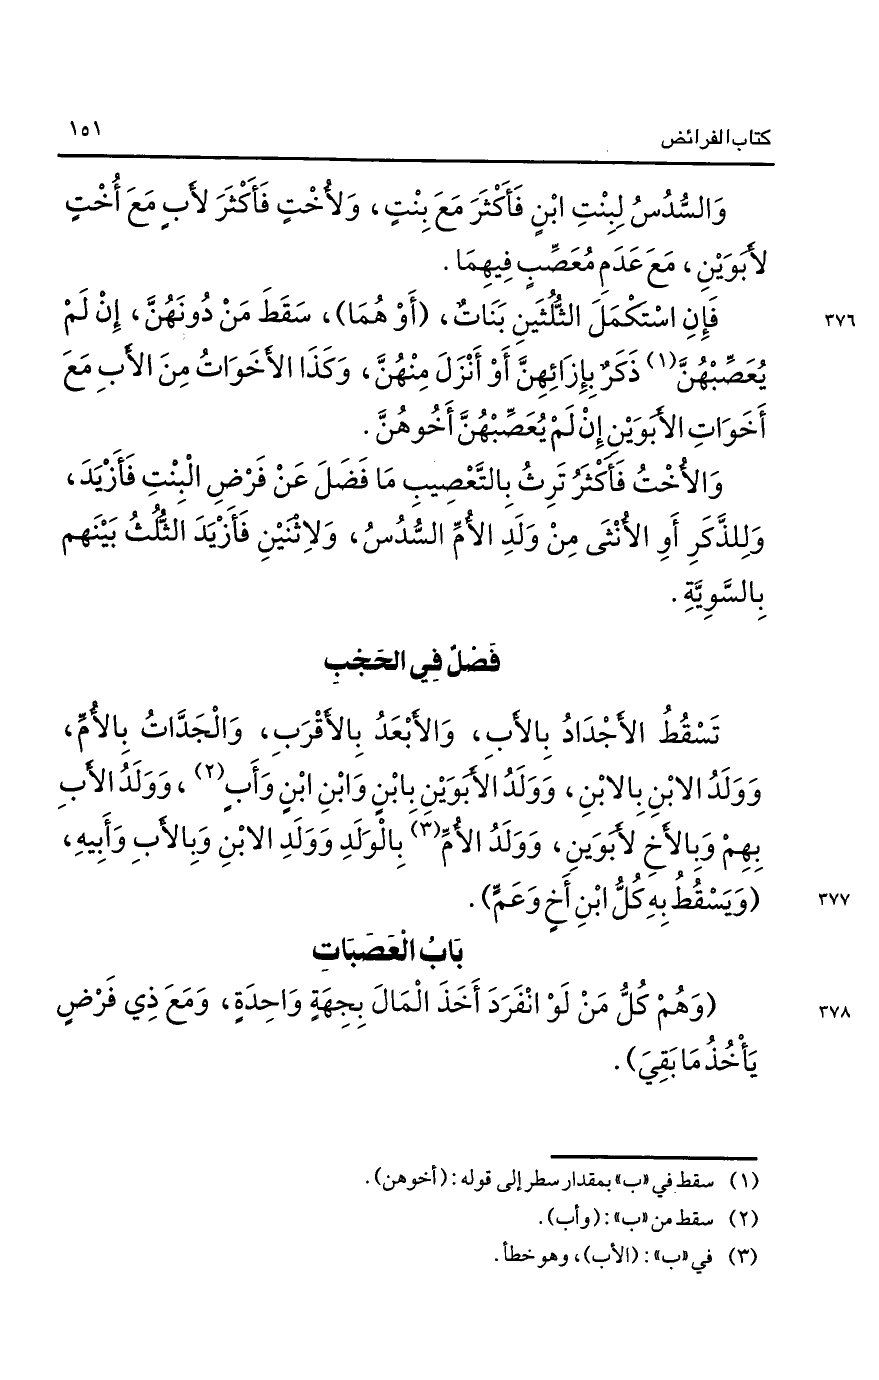 كتاب الفرائض ١٥١
وَالسُّدُسُ لِبِنْتِ ابْنٍ فَأَكْثَرَ مَعَ بِنْتٍ، وَلأُخْتٍ فَأَكْثَرَ لأَبٍ مَعَ أُخْتٍ
لأَبَوَيْنِ، مَعَ عَدَمِ مُعَصِّبٍ فِيهِمَا.
٣٧٦ فَإِنِ اسْتَكْمَلَ الثُّلُثَينِ بَنَاتٌ، (أَوْ هُمَا)، سَقَطَ مَنْ دُونَهُنَّ، إِنْ لَمْ
يُعَصِّبْهُنَّ(١) ذَكَرٌ بِإِزَائِهِنَّ أَوْ أَنْزَلَ مِنْهُنَّ، وَكَذَا الأَخَوَاتُ مِنَ الأَبِ مَعَ
أَخَوَاتِ الأَبَوَيْنِ إِنْ لَمْ يُعَصِّبْهُنَّ أَخُوهُنَّ.
وَالأُخْتُ فَأَكْثَرُ تَرِثُ بِالتَّعْصِيبِ مَا فَضَلَ عَنْ فَرْضِ الْبِنْتِ فَأَزْيَدَ،
وَلِلذَّكَرِ أَوِ الأُنْثَى مِنْ وَلَدِ الأُمِّ السُّدُسُ، وَلاِثْنَيْنِ فَأَزْيَدَ الثُّلُثُ بَيْنَهم
بِالسَّوِيَّةِ.
فَصْلٌ فِي الحَجْبِ
تَسْقُطُ الأَجْدَادُ بِالأَبِ، وَالأَبْعَدُ بِالأَقْرَبِ، وَالْجَدَّاتُ بِالأُمِّ،
وَوَلَدُ الابْنِ بِالابْنِ، وَوَلَدُ الأَبَوَيْنِ بِابْنٍ وَابْنِ ابْنٍ وَأَبٍ(٢)، وَوَلَدُ الأَبِ
بِهِمْ وَبِالأَخِ لأَبَوَينِ، وَوَلَدُ الأُمِّ(٣) بِالْوَلَدِ وَوَلَدِ الابْنِ وَبِالأَبِ وَأَبِيهِ،
٣٧٧ (وَيَسْقُطُ بِهِ كُلُّ ابْنِ أَخٍ وَعَمٍّ).
بَابُ الْعَصَبَاتِ
٣٧٨ (وَهُمْ كُلُّ مَنْ لَوْ انْفَرَدَ أَخَذَ الْمَالَ بِجِهَةٍ وَاحِدَةٍ، وَمَعَ ذِي فَرْضٍ
يَأْخُذُ مَا بَقِيَ).
(١) سقط في «ب» بمقدار سطر إلى قوله: (أخوهن).
(٢) سقط من «ب»: (وأب).
(٣) في «ب»: (الأب)، وهو خطأ.